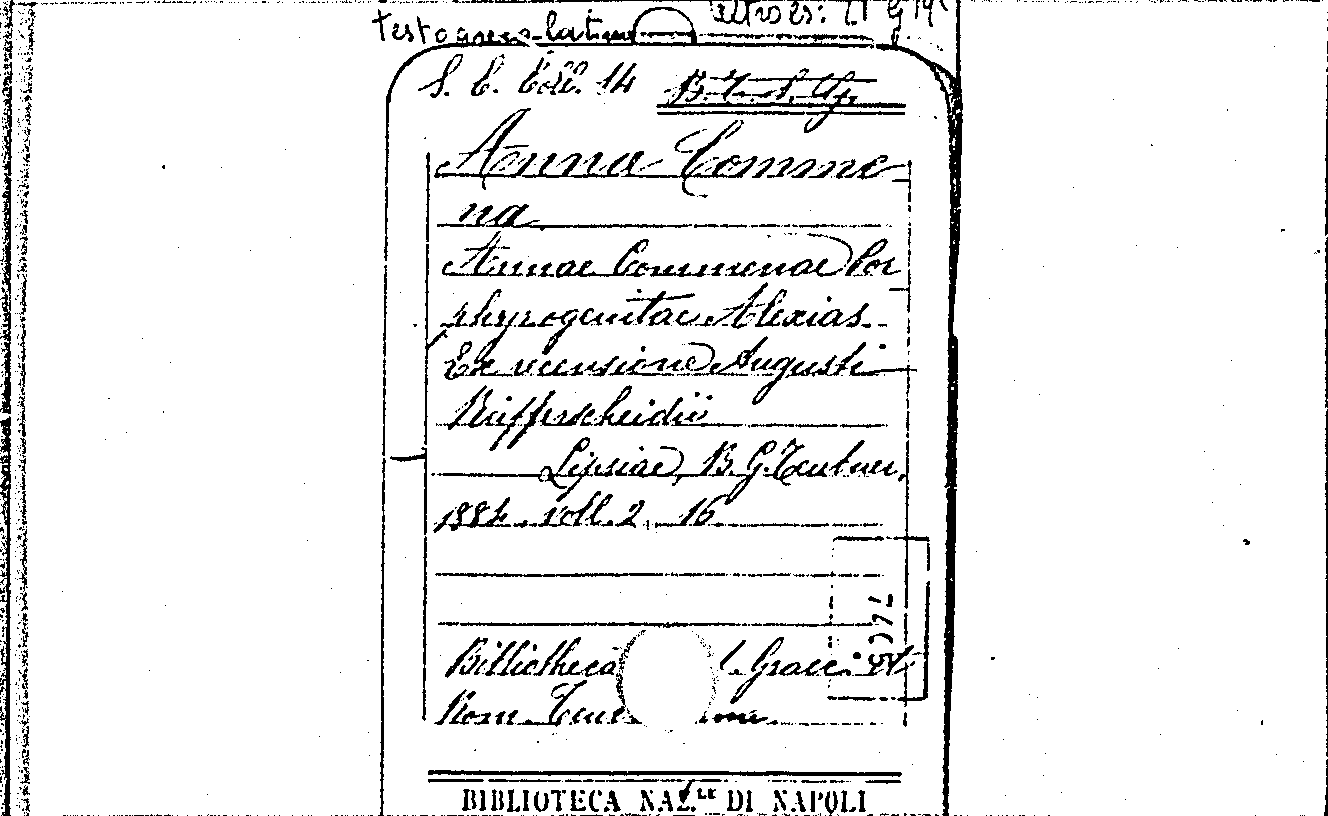 testo greco-latino altro es:
S. C. Coll. 14
Anna Comme-
na
Annae Comnenae Por
phyrogenitae Alexias.
Ex recensione Augusti
Reifferscheidii
Lipsiae, B. G. Teubner,
1884. voll. 2, 16
Bibliotheca Graec. et
Rom. Teub
BIBLIOTECA NAZ.LE DI NAPOLI